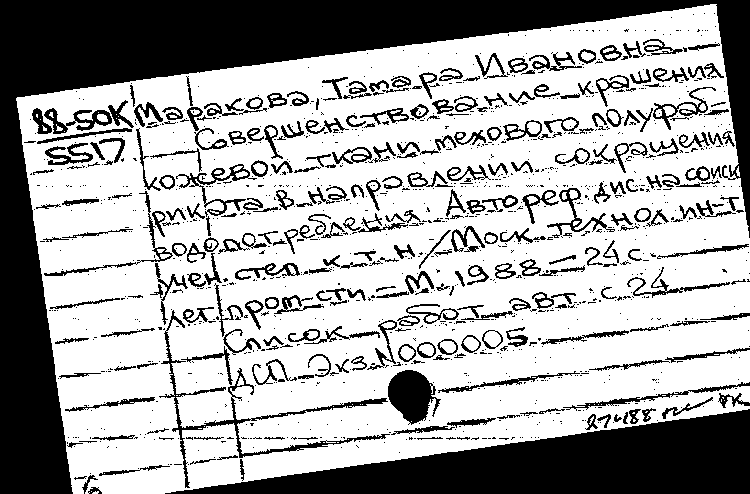 88-50К Маракова, Тамара Ивановна
5517 Совершенствование крашения
кожевой ткани мехового полуфаб-
риката в направлении сокращения
водопотребления. Автореф. дис. на соиск
учен. степ к. т. н. / Моск. технол. ин-т
лег. пром-сти. - М., 1988 - 24 с.
Список работ авт. с 24
ДСП Экз. N000005.